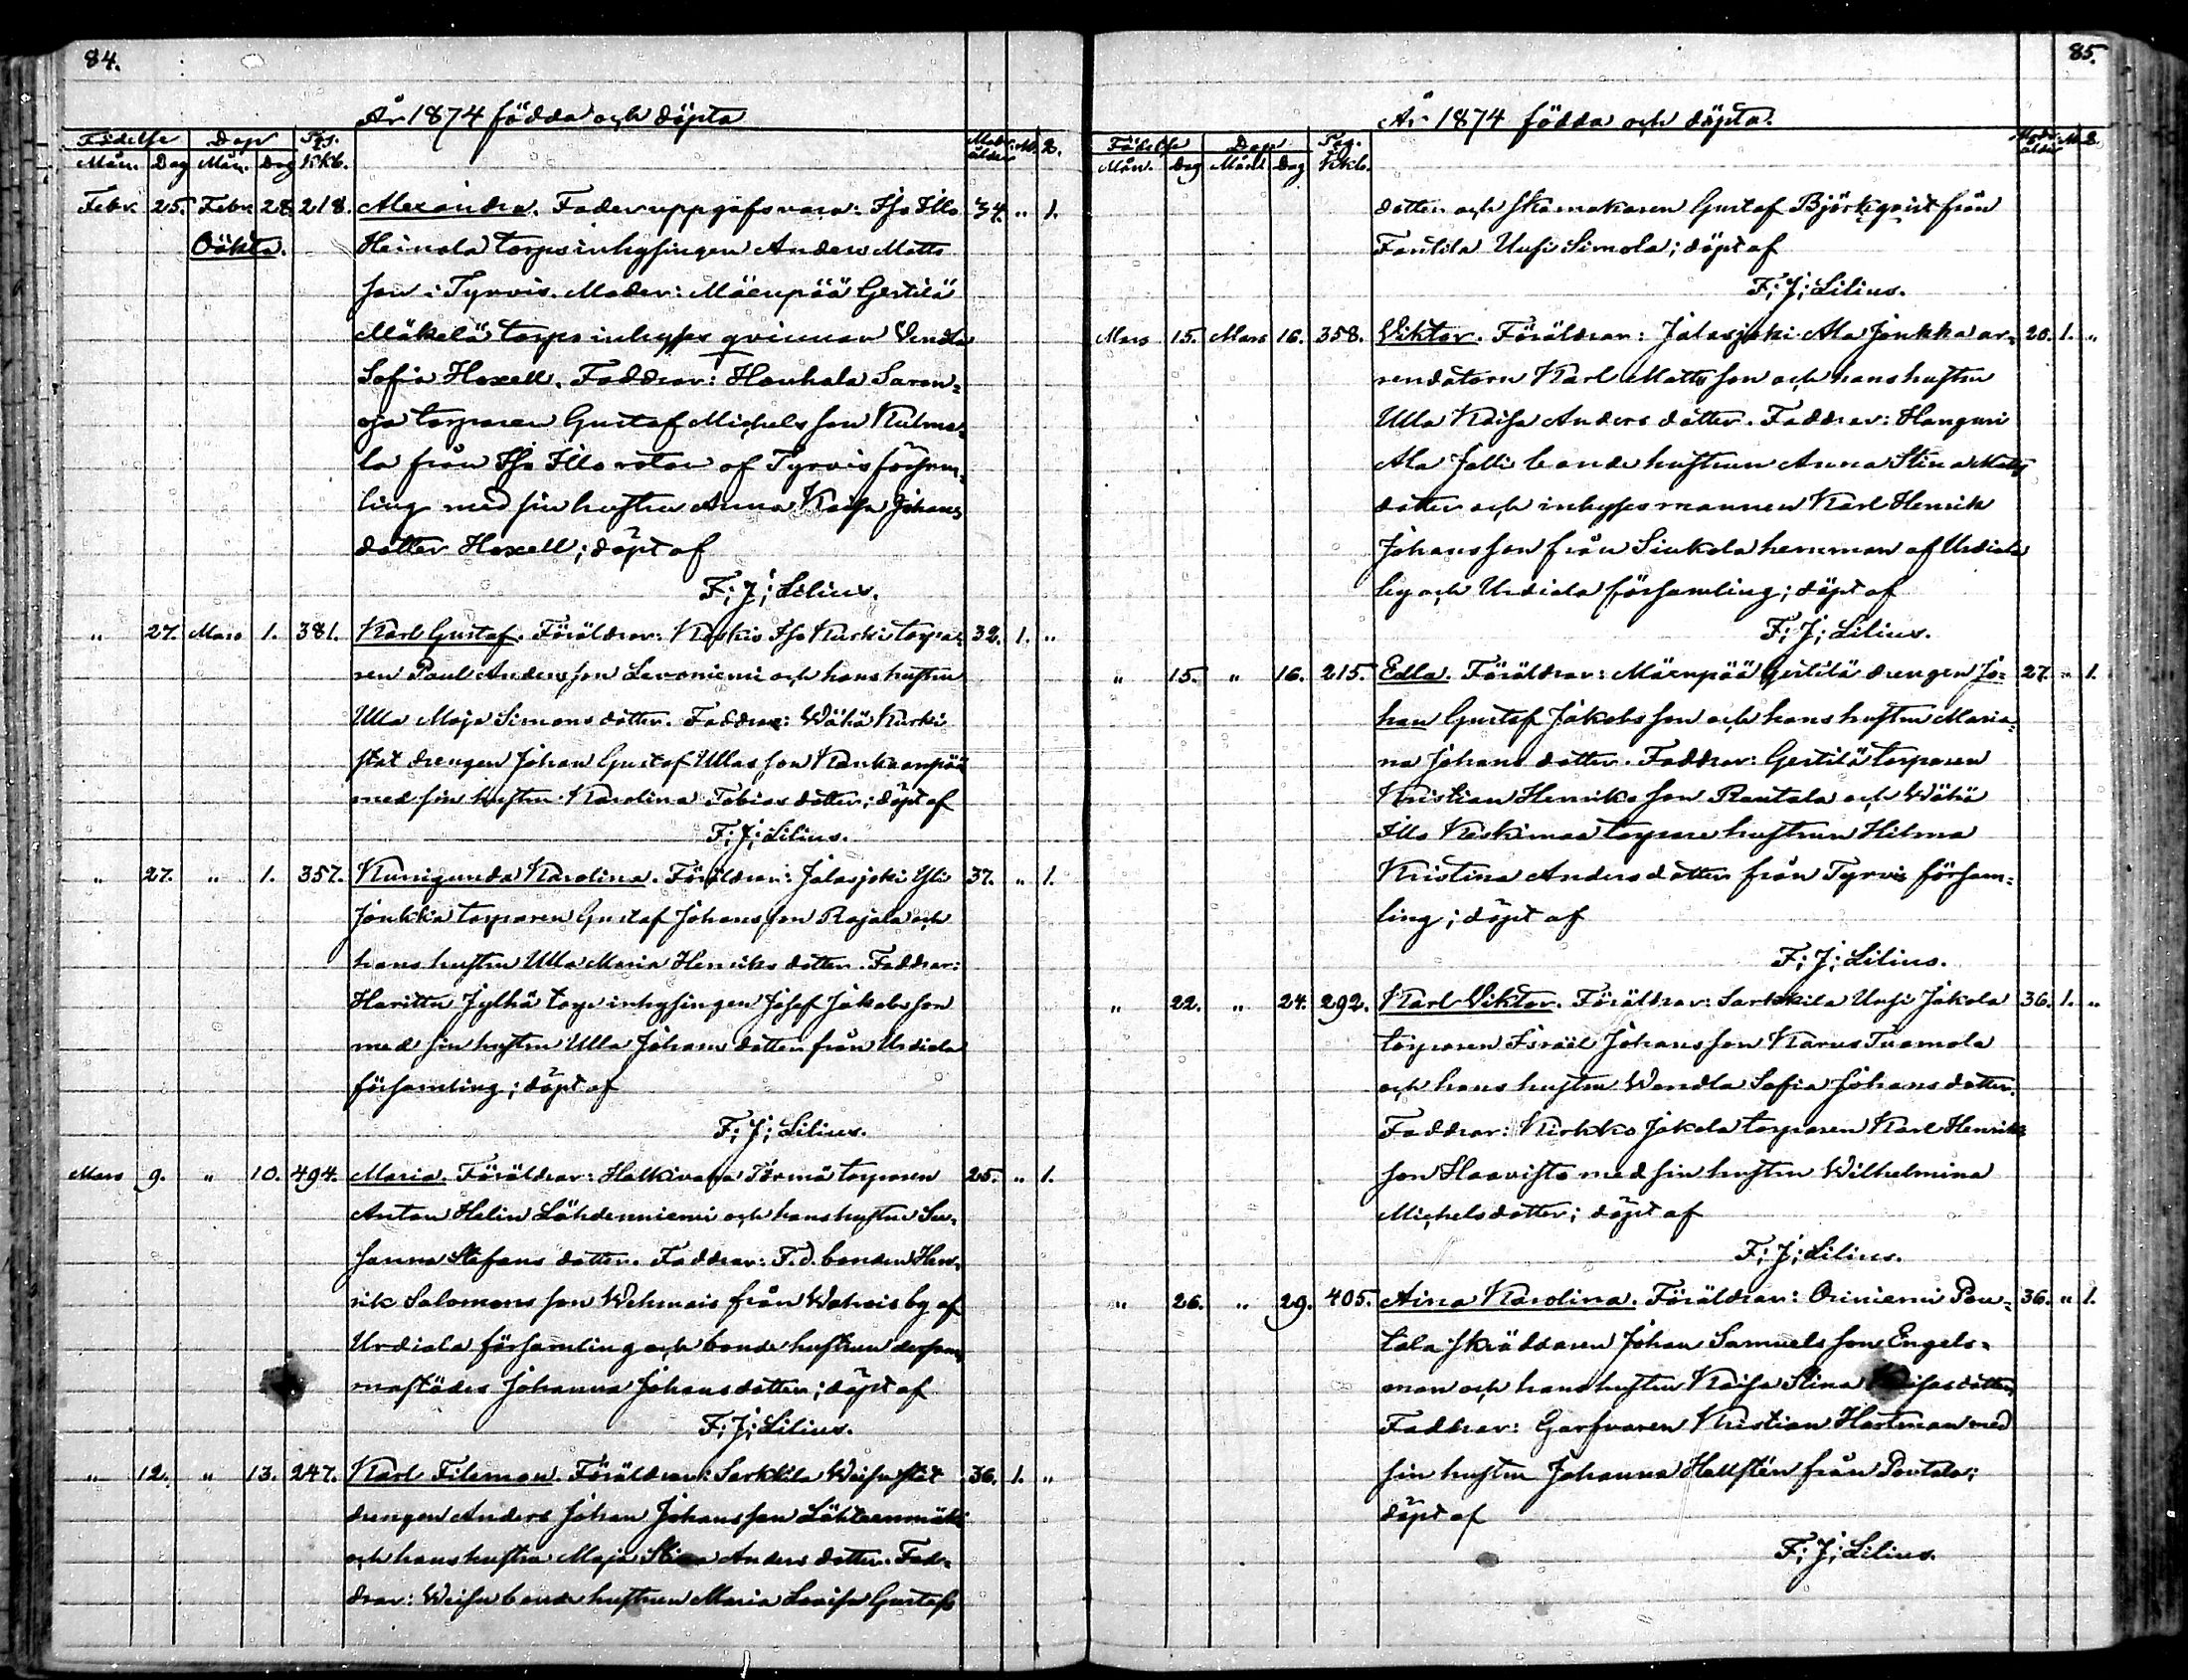 84.
År 1874 födda och döpta
Födelse Dop Pag. Modr. M. Q.
Mån. Dag Mån. Dag Kkb. ålder
Febr. 25. Febr. 28. 218. Alexandra. Fader uppgafs vara: Iso Illo 34. " 1.
Oäkta. Heinola torpsinhysingen Anders Matts
son i Tyrvis. Moder: Mäenpää Gertilä
Mäkelä torps inhyses qvinnan Vendla
Sofia Hoxell. Faddrar: Houhala Saren-
oja torparen Gustaf Michelsson Kulma-
la från Iso Illo rotan af Tyrvis försam-
ling med sin hustru Anna Kaisa Johans
dotter Hoxell; döpt af
F; J; Lilius.
" 27. Mars 1. 381. Karl Gustaf. Föräldrar: Koskis Iso Kurki torpa- 32. 1. "
ren Paul Andersson Levoniemi och hans hustru
Ulla Maja Simonsdotter. Faddrar: Wähä Kurki
stat drengen Johan Gustaf Ullasson Kankaanpää
med sin hustru Karolina Tobiasdotter; döpt af
F; J; Lilius.
" 27. " 1. 357. Kunigunda Karolina. Föräldrar: Jalasjoki Yli 37. " 1.
Jonkka torparen Gustaf Johansson Rajala och
hans hustru Ulla Maria Henriksdotter. Faddrar:
Harittu Jylhä torp inhysingen Josef Jakobsson
med sin hustru Ulla Johansdotter från Urdiala
församling; döpt af
F; J; Lilius.
Mars 9. " 10. 494. Maria. Föräldrar: Halkivaha Törmä torparen 25. " 1.
Anton Helin Lähdenniemi och hans hustru Su-
sanna Stefansdotter. Faddrar: F. d. bonden Hen-
rik Salomonsson Wehmais från Wahois by af
Urdiala församling och bonde hustrun dersam-
mastädes Johanna Johansdotter; döpt af
F; J; Lilius.
" 12. " 13. 247. Karl Fileman. Föräldrar: Sarkkila Weisu stat 36. 1. "
drengen Anders Johan Johansson Lähteenmäki
och hans hustru Maja Stina Andersdotter. Fad-
drar: Weisu bonde hustrun Maria Lovisa Gustafs
85.
År 1874 födda och döpta.
Födelse Dop Pag. Modr. M. Q.
Mån. Dag Mån. Dag Kkb. ålder
dotter och skomakaren Gustaf Björkqvist från
Fantila Uusi Simola; döpt af
F; J; Lilius.
Mars 15. Mars 16. 358. Viktor. Föräldrar: Jalasjoki Ala Jonkka ar- 20. 1. "
rendatorn Karl Mattsson och hans hustru
Ulla Kaisa Andersdotter. Faddrar: Hanguri
Ala Jalli bonde hustrun Anna Stina Matts
dotter och inhysesmannen Karl Henrik
Johansson från Siukola hemman af Urdiala
by och Urdiala församling; döpt af
F; J; Lilius.
" 15. " 16. 215. Edla. Föräldrar: Mäenpää Gertilä drengen Jo- 27. " 1.
han Gustaf Jakobsson och hans hustru Maria-
na Johansdotter. Faddrar: Gertilä torparen
Kristian Henriksson Rautala och Wähä
Illo Keskimaa torpare hustrun Hilma
Kristina Andersdotter från Tyrvis försam-
ling; döpt af
F; J; Lilius.
" 22. " 24. 292. Karl Viktor. Föräldrar: Sarkkila Uusi Jakola 36. 1. "
torparen Israel Johansson Karus Tuomola
och hans hustru Wendla Sofia Johansdotter.
Faddrar: Kirkko Jakola torparen Karl Henriks
son Haavisto med sin hustru Wilhelmina
Michelsdotter; döpt af
F; J; Lilius.
" 26. " 29. 405. Aina Karolina. Föräldrar: Oriniemi Pou- 36. " 1.
tala skräddaren Johan Samuelsson Engels-
man och hans hustru Kaisa Stina
Faddrar: Garfvaren Kristian Hartman med
sin hustru Johanna Hallstén från Poutala;
döpt af
F; J; Lilius.